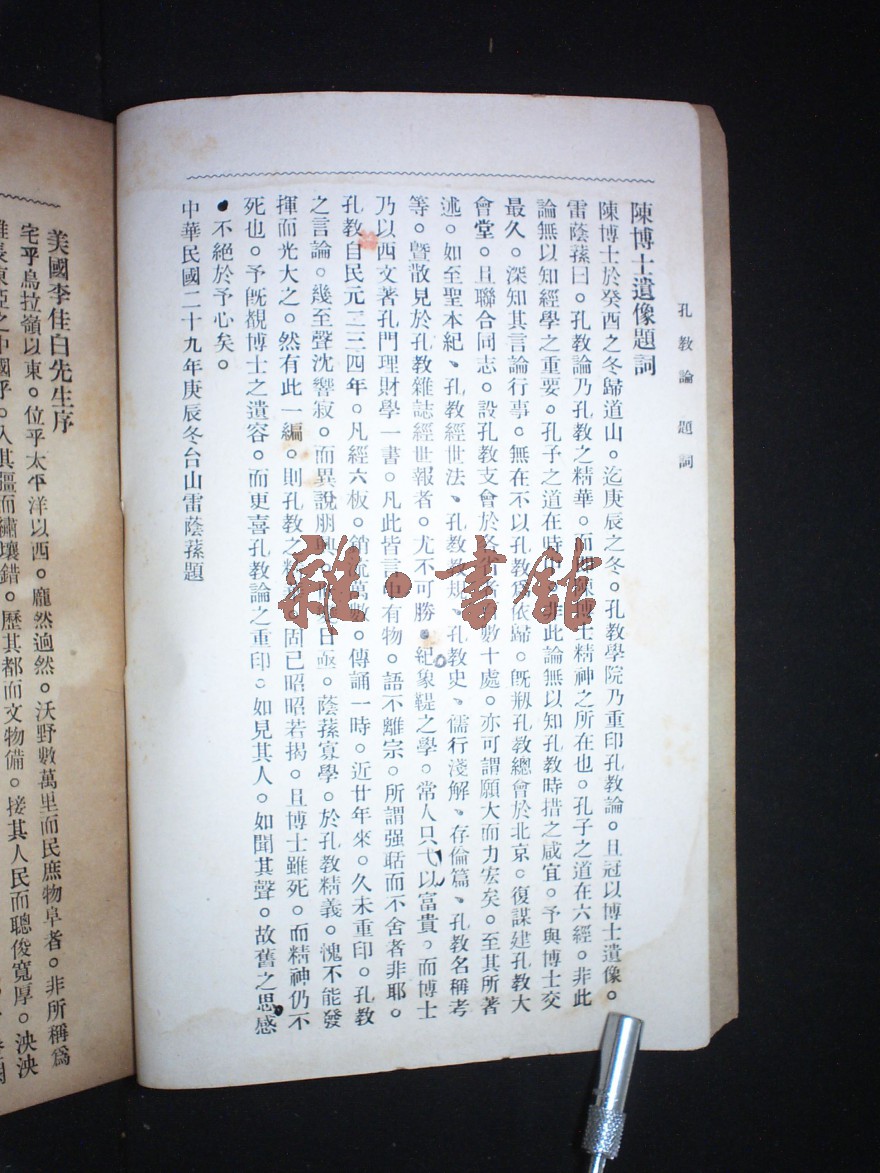 孔教論 題詞
陳博士遺像題詞
陳博士於癸酉之冬歸道山。迄庚辰之冬。孔教學院乃重印孔教論。且冠以博士遺像。
雷蔭蓀曰。孔教論乃孔教之精華。而陳博士精神之所在也。孔子之道在六經。非此
論無以知經學之重要。孔子之道在時中。非此論無以知孔教時措之咸宜。予與博士交
最久。深知其言論行事。無在不以孔教爲依歸。既剏孔教總會於北京。復謀建孔教大
會堂。且聯合同志。設孔教支會於各省者數十處。亦可謂願大而力宏矣。至其所著
述。如至聖本紀、孔教經世法、孔教教規、孔教史、儒行淺解、存倫篇、孔教名稱考
等。曁散見於孔教雜誌經世報者。尤不可勝紀象鞮之學。常人只以富貴。而博士
乃以西文著孔門理財學一書。凡此皆言中有物。語不離宗。所謂强聒而不舍者非耶。
孔教自民元二三四年。凡經六板。銷流萬數。傳誦一時。近廿年來。久未重印。孔教
之言論。幾至聲沈響寂。而異說朋興。日亟。蔭蓀寡學。於孔教精義。愧不能發
揮而光大之。然有此一編。則孔教之精固已昭昭若揭。且博士雖死。而精神仍不
死也。予既覩博士之遺容。而更喜孔教論之重印。如見其人。如聞其聲。故舊之思感
不絕於予心矣。
中華民國二十九年庚辰冬台山雷蔭蓀題
美國李佳白先生序
宅乎烏拉嶺以東。位乎太平洋以西。龐然逈然。沃野數萬里而民庶物阜者。非所稱爲
雄長東亞之中國乎。入其疆而繡壤錯。歷其都而文物備。接其人民而聰俊寬厚。泱泱
雜·書館